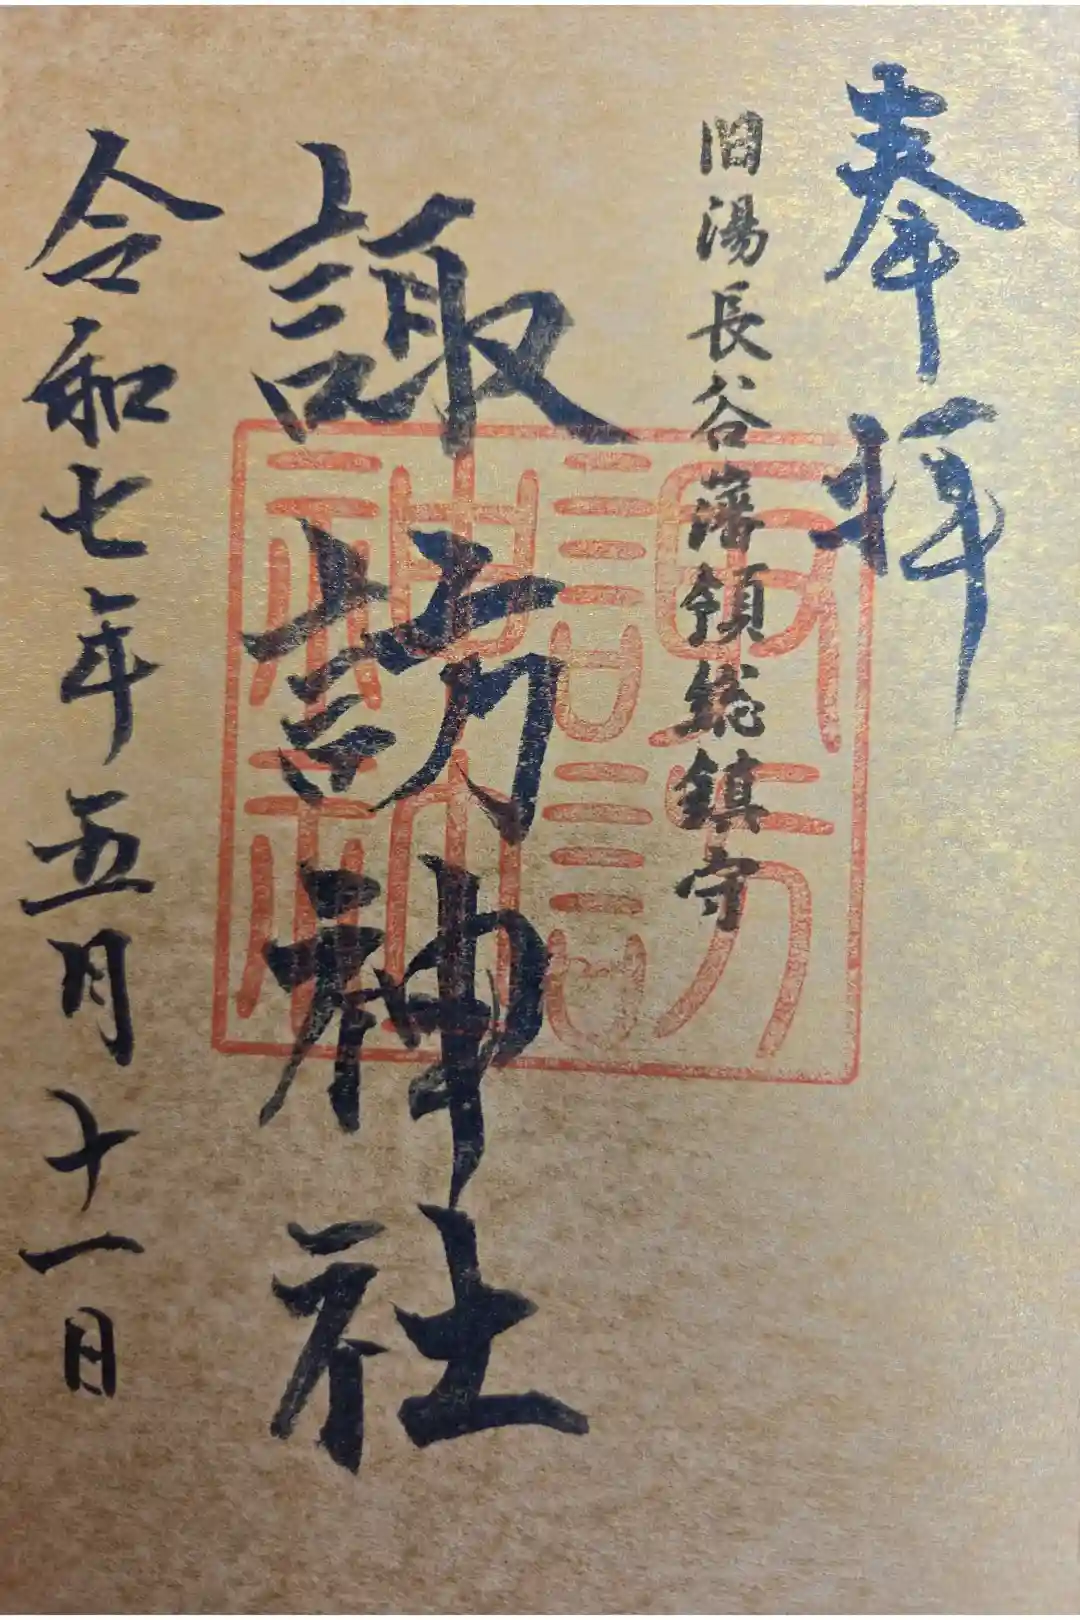 奉拝
旧湯長谷藩領総鎮守
諏訪神社
諏訪
神社
令和七年五月十一日